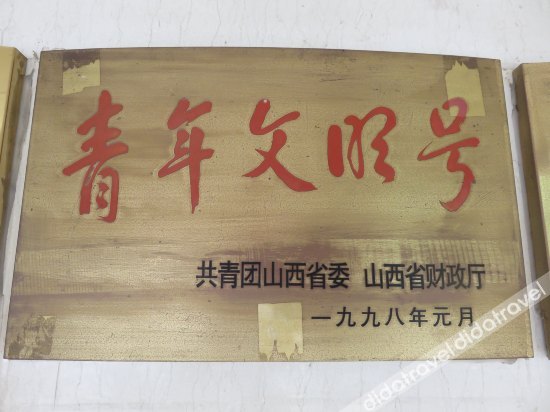 青年文明号
共青团山西省委 山西省财政厅
一九九八年元月
didatravel didatravel